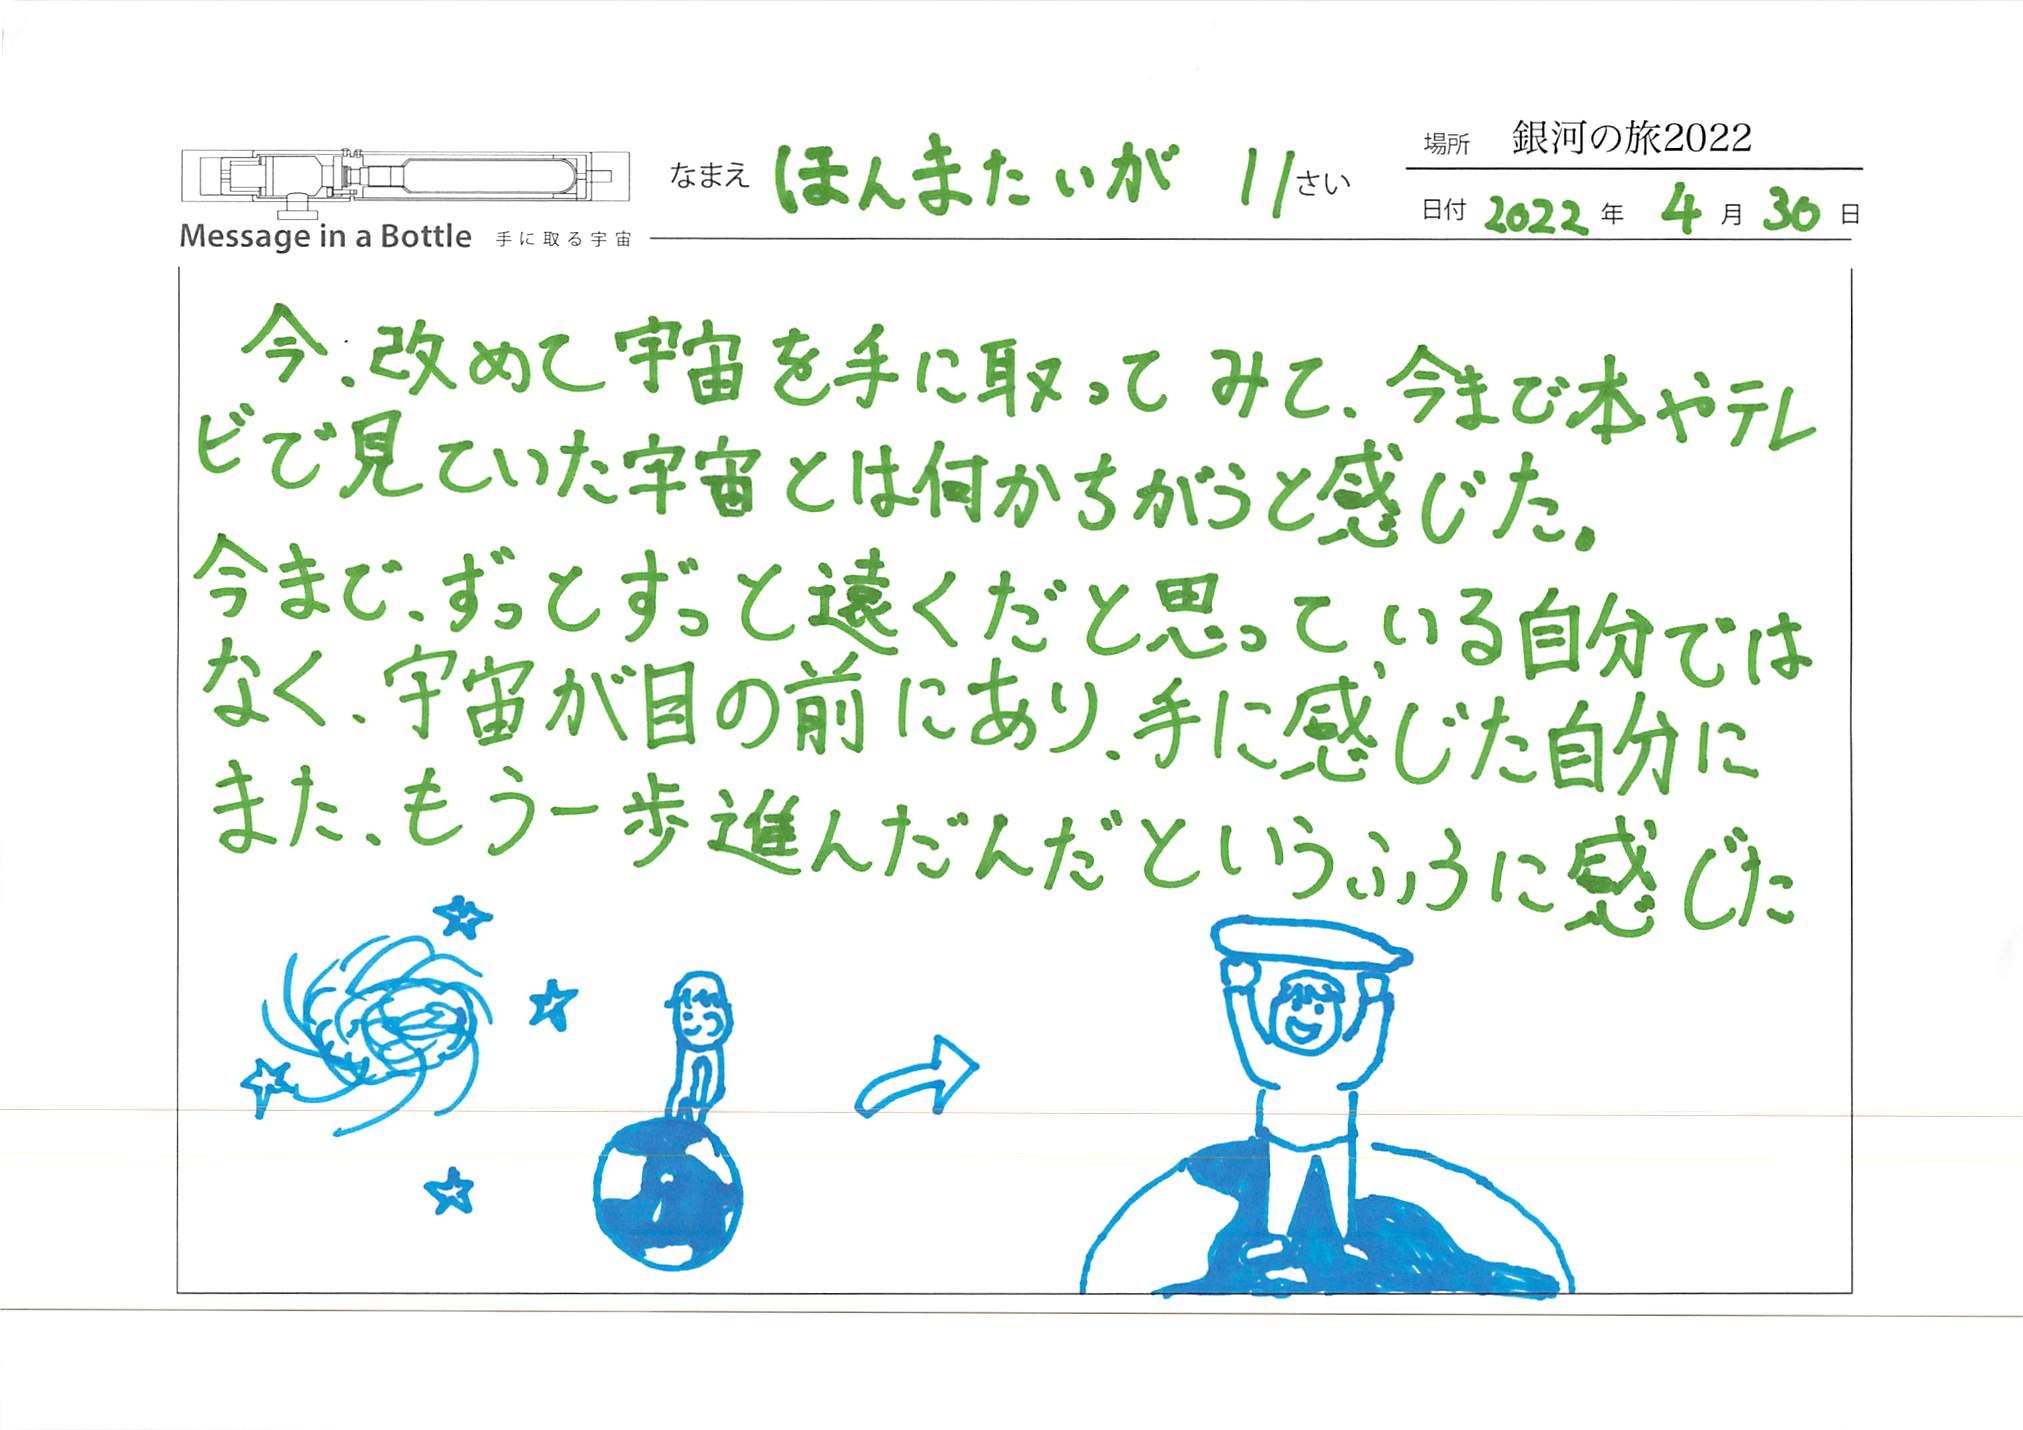 場所 銀河の旅2022
なまえ ほんまたいが 11さい
日付 2022年 4月 30日
Message in a Bottle 手に取る宇宙
今、改めて宇宙を手に取ってみて、今まで本やテレ
ビで見ていた宇宙とは何かちがうと感じた。
今まで、ずっとずっと遠くだと思っている自分では
なく、宇宙が目の前にあり、手に感じた自分に
また、もう一歩進んだんだというふうに感じた